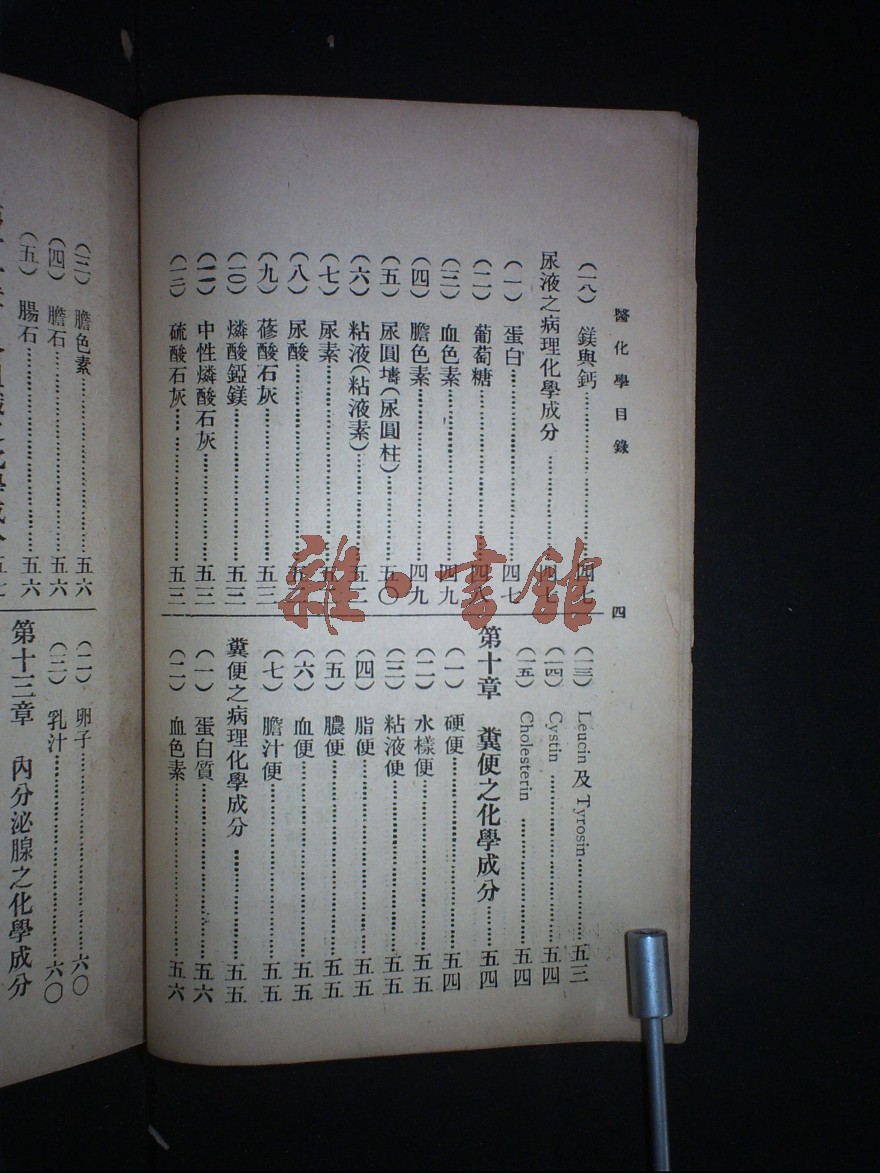 醫化學目錄
四
(一八) 鎂與鈣……四七
尿液之病理化學成分……四七
(一) 蛋白……四七
(二) 葡萄糖……四八
(三) 血色素……四九
(四) 膽色素……四九
(五) 尿圓壔(尿圓柱)……五〇
(六) 粘液(粘液素)……五二
(七) 尿素
(八) 尿酸
(九) 蓚酸石灰……五三
(一〇) 燐酸錏鎂……五三
(一一) 中性燐酸石灰……五三
(一二) 硫酸石灰……五三
(一三) Leucin 及 Tyrosin……五三
(一四) Cystin……五四
(一五) Cholesterin……五四
第十章 糞便之化學成分……五四
(一) 硬便……五四
(二) 水樣便……五五
(三) 粘液便……五五
(四) 脂便……五五
(五) 膿便……五五
(六) 血便……五五
(七) 膽汁便……五五
糞便之病理化學成分……五五
(一) 蛋白質……五六
(二) 血色素……五六
(三) 膽色素……五六
(四) 膽石……五六
(五) 腸石……五六
(二) 卵子……六〇
(三) 乳汁……六〇
第十三章 內分泌腺之化學成分
雜·書館